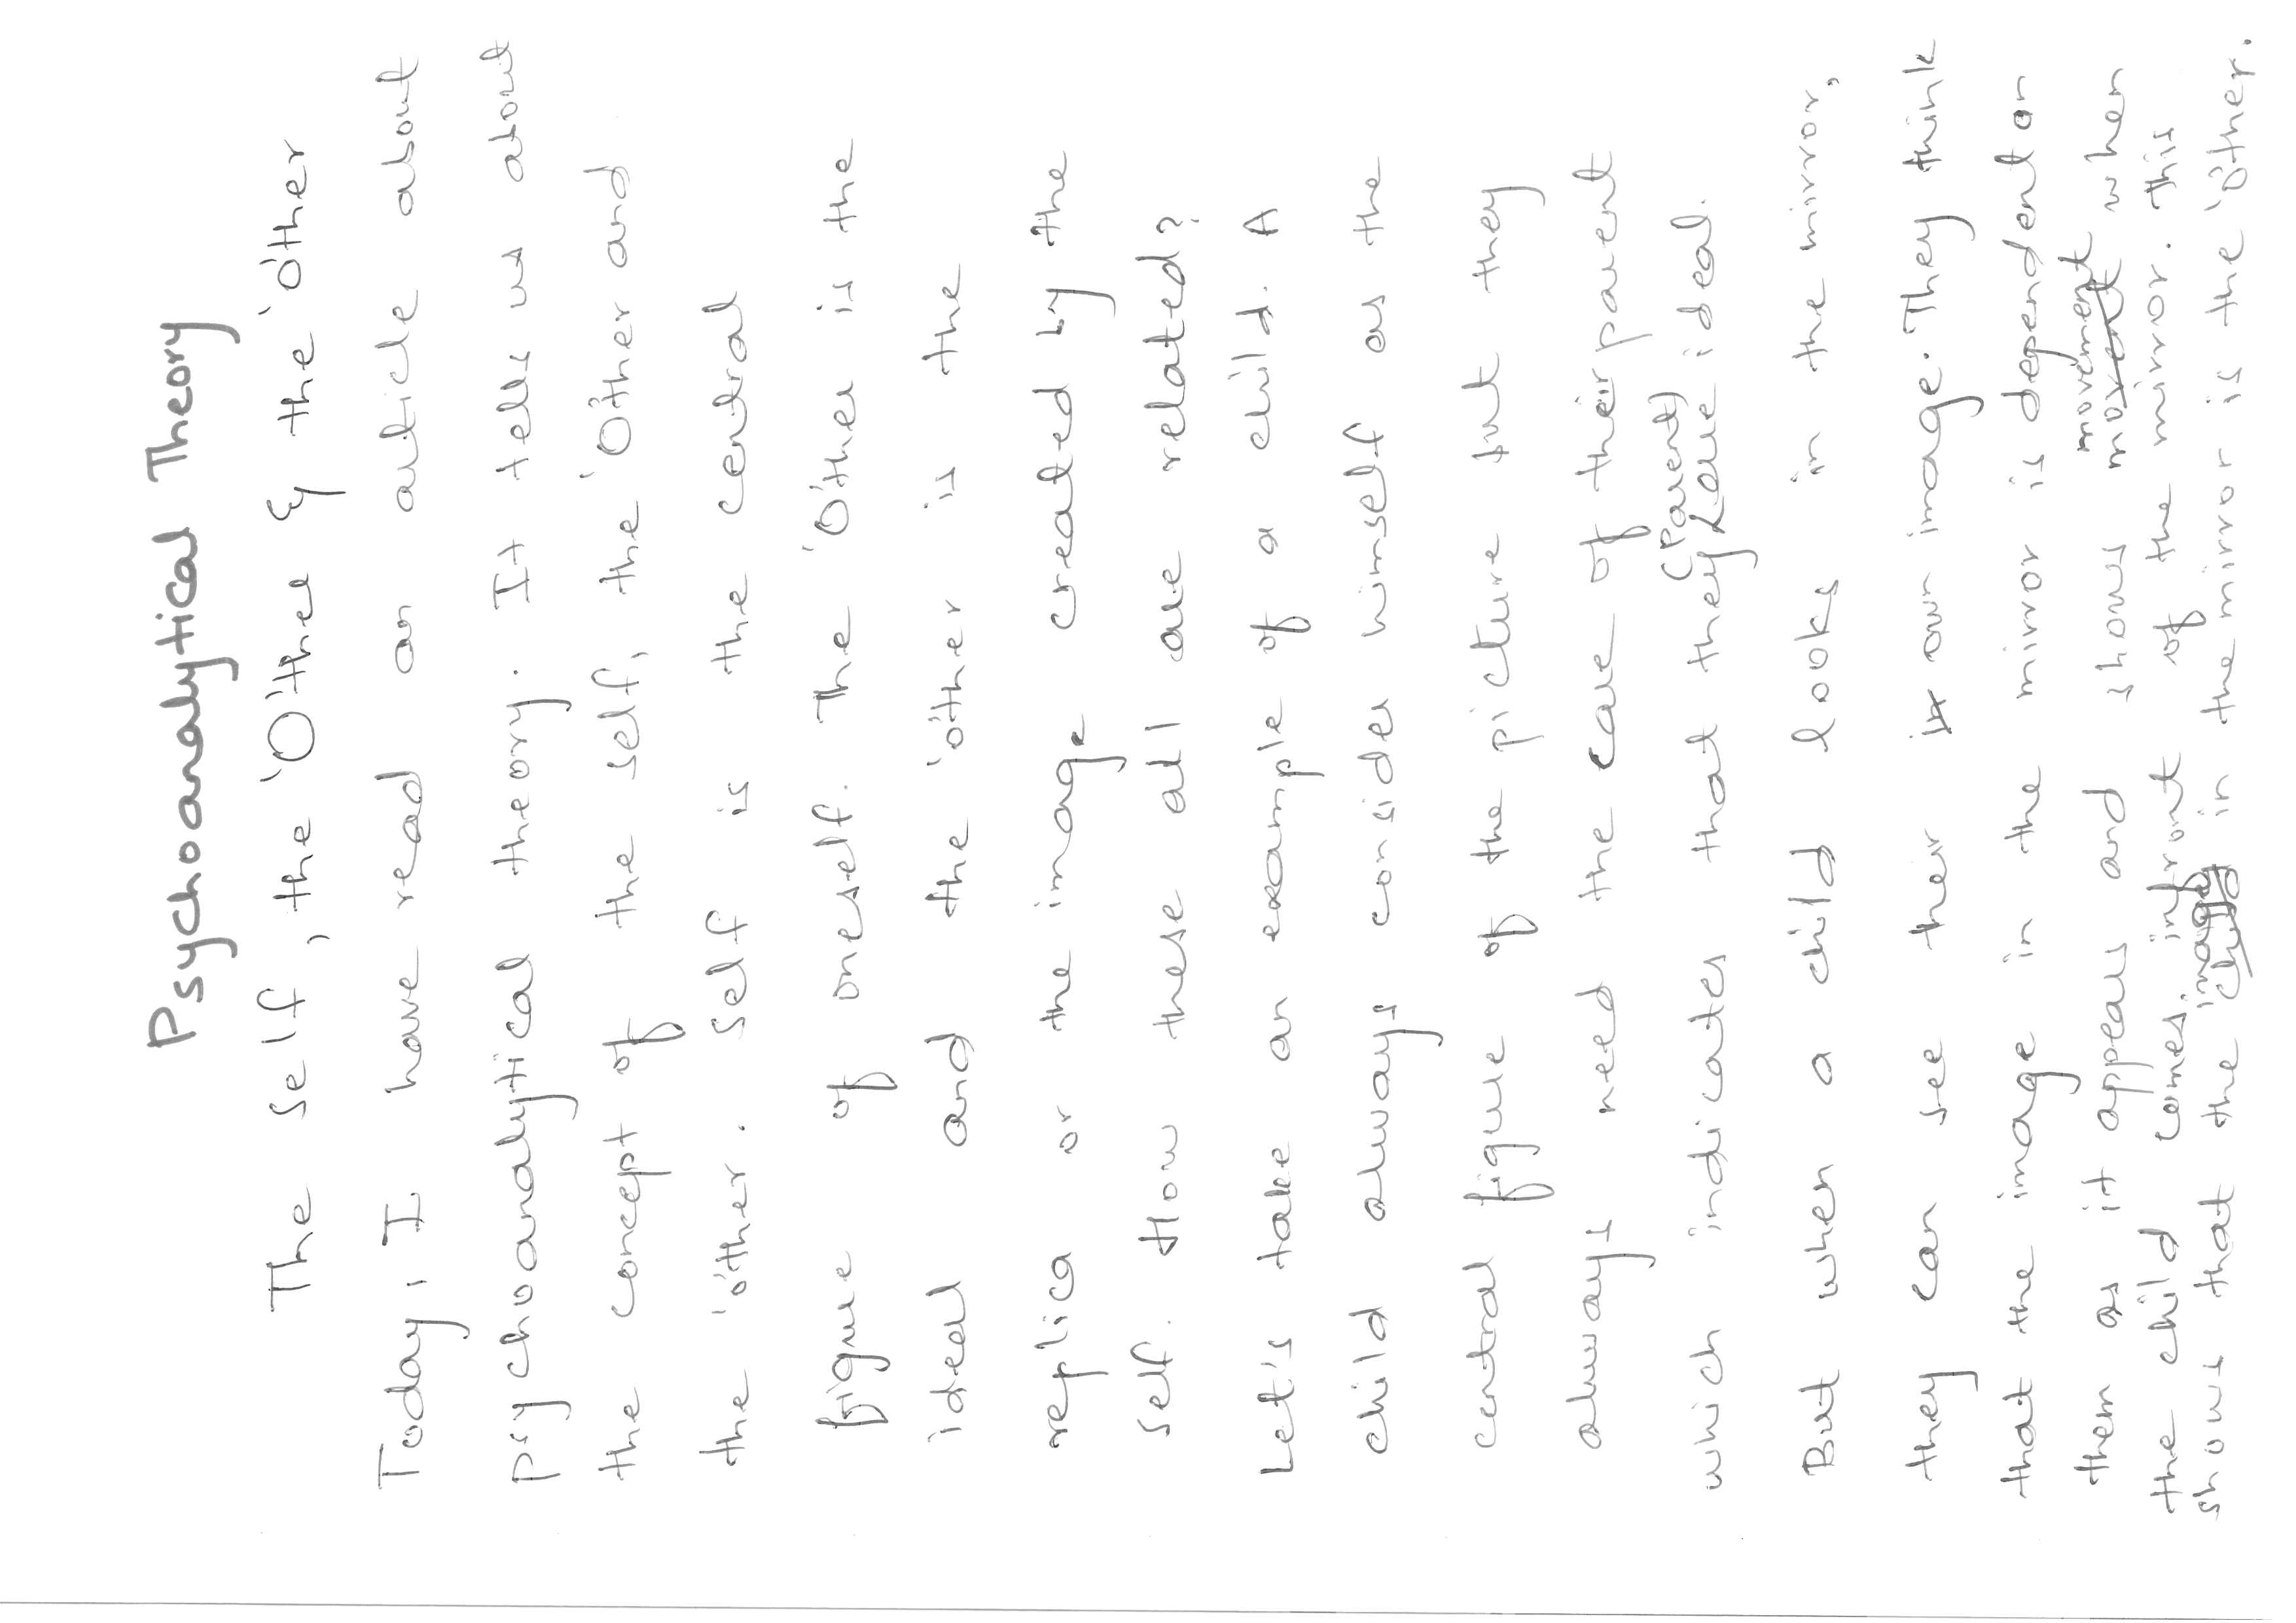 Psychoanalytical Theory
The self, the 'O'ther & the 'o'ther
Today, I have read an article about
psychoanalytical theory. It tells us about
the concept of the self, the 'O'ther and
the 'o'ther. Self is the central
figure of oneself. The 'O'ther is the
ideal and the 'o'ther is the
replica or the image created by the
self. How these all are related?
Let's take an example of a child. A
child always consider himself as the
central figure of the picture but they
always need the care of their parent
(Parent)
which indicates that they are ideal.
But when a child looks in the mirror,
they can see their in own image. They think
that the image in the mirror is dependent on
movement
them as it appears and shows movent when
the child comes infront of the mirror. This
image
shows that the child in the mirror is the 'o'ther.